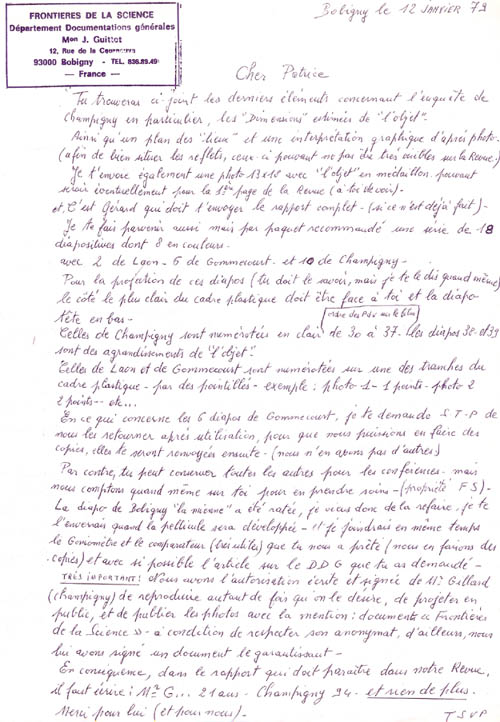 FRONTIERES DE LA SCIENCE
Département Documentations générales
Mon J. Guittot
12, Rue de la
93000 Bobigny - TEL. 836.89.49
— France —
Bobigny le 12 JANVIER 79
Cher Patrice
Tu trouveras ci-joint les derniers éléments concernant l'enquête de
Champigny en particulier, les "Dimensions" estimées de "l'objet".
Ainsi qu'un plan des "lieux" et une interprétation graphique d'après photo.
(afin de bien situer les reflets, ceux-ci pouvant ne pas être très visibles sur la Revue.)
Je t'envoie également une photo 13x18 avec "l'objet" en médaillon. pouvant
servir éventuellement pour la 1ère page de la Revue (à toi de voir) -
et, C'est Gérard qui doit t'envoyer le rapport complet - (si ce n'est déjà fait) -
Je te fais parvenir aussi mais par paquet recommandé une série de 18
diapositives dont 8 en couleurs -
avec 2 de Laon - 6 de Gommecourt - et 10 de Champigny -
Pour la projection de ces diapos (tu doit le savoir, mais je te le dis quand même)
le côté le plus clair du cadre plastique doit être face à toi et la diapo
tête en bas -
Celles de Champigny sont numérotées en clair de 30 à 37 - les diapos 38 et 39
sont des agrandissements de "l'objet".
Celles de Laon et de Gommecourt sont numérotées sur une des tranches du
cadre plastique - par des pointillés - exemple : photo 1 - 1 points - photo 2
2 points -- etc...
En ce qui concerne les 6 diapos de Gommecourt, je te demande S.T.P de
nous les retourner après utilisation, pour que nous puissions en faire des
copies, elles te seront renvoyées ensuite - (nous n'en avons pas d'autres)
Par contre, tu peut conserver toutes les autres pour les conférences - mais
nous comptons quand même sur toi pour en prendre soin - (propriété F S) -
La diapo de Bobigny "la mienne" a été ratée, je viens donc de la refaire, je te
l'enverrais quand la pellicule sera développée - et je joindrais en même temps
le Goniomètre et le comparateur (très utiles) que tu nous a prêté (nous en faisons des
copies) et avec si possible l'article sur le D D G que tu as demandé -
TRÈS IMPORTANT : Nous avons l'autorisation écrite et signée de Mr Gillard
(Champigny) de reproduire autant de fois qu'on le désire, de projeter en
public, et de publier les photos avec la mention : documents « Frontières
de la Science » - à condition de respecter son anonymat, d'ailleurs, nous
lui avons signé un document le garantissant -
En conséquence, dans le rapport qui doit paraître dans notre Revue,
il faut écrire : Mr G... 21 ans - Champigny 94 - et rien de plus -
Merci pour lui (et pour nous) -
T S V P